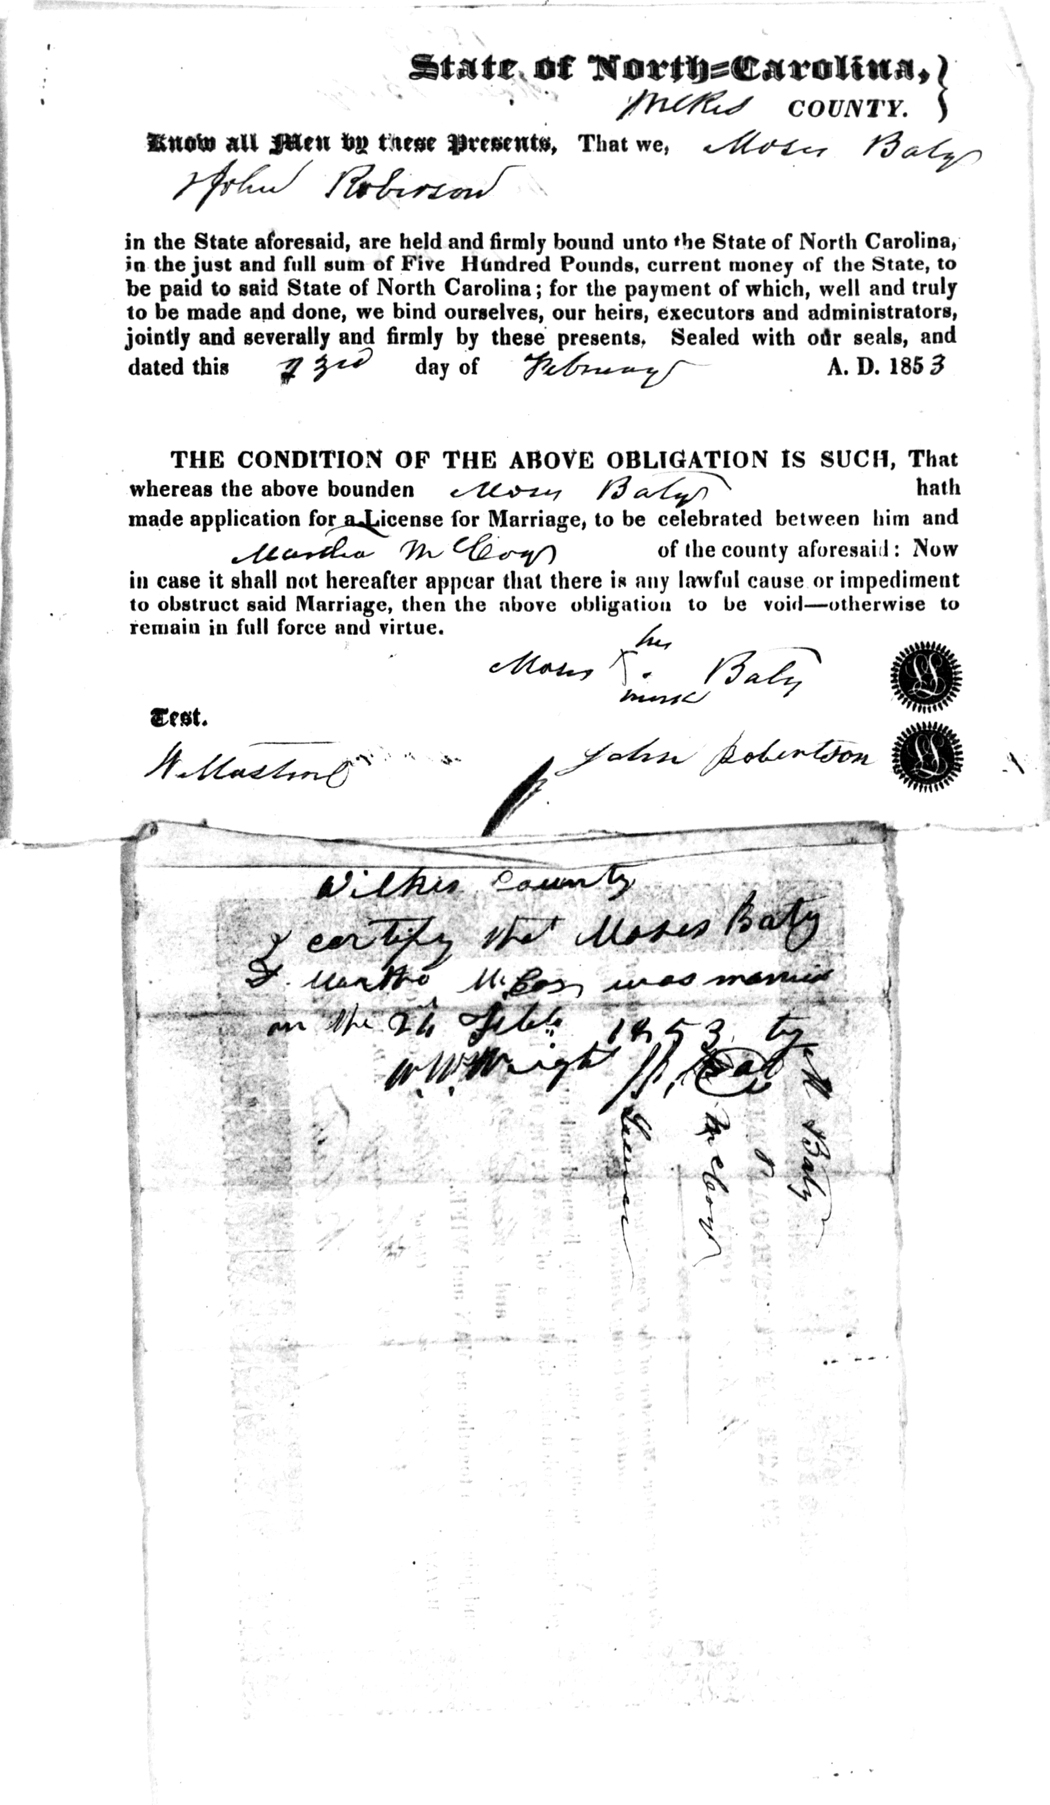 State of North-Carolina,
Wilkes COUNTY.
Know all Men by these Presents, That we, Moses Baty
& John Roberson
in the State aforesaid, are held and firmly bound unto the State of North Carolina,
in the just and full sum of Five Hundred Pounds, current money of the State, to
be paid to said State of North Carolina; for the payment of which, well and truly
to be made and done, we bind ourselves, our heirs, executors and administrators,
jointly and severally and firmly by these presents. Sealed with our seals, and
dated this 23rd day of February A. D. 1853
THE CONDITION OF THE ABOVE OBLIGATION IS SUCH, That
whereas the above bounden Moses Baty hath
made application for a License for Marriage, to be celebrated between him and
Martha McCoy of the county aforesaid: Now
in case it shall not hereafter appear that there is any lawful cause or impediment
to obstruct said Marriage, then the above obligation to be void—otherwise to
remain in full force and virtue.
his
Moses X Baty
mark
Test.
W Mastin John Robertson
Wilkes County
I certify that Moses Baty
& Martha McCoy was married
on the 24 Feb 1853 by
W. W. Wright
M Baty
McCoy
License